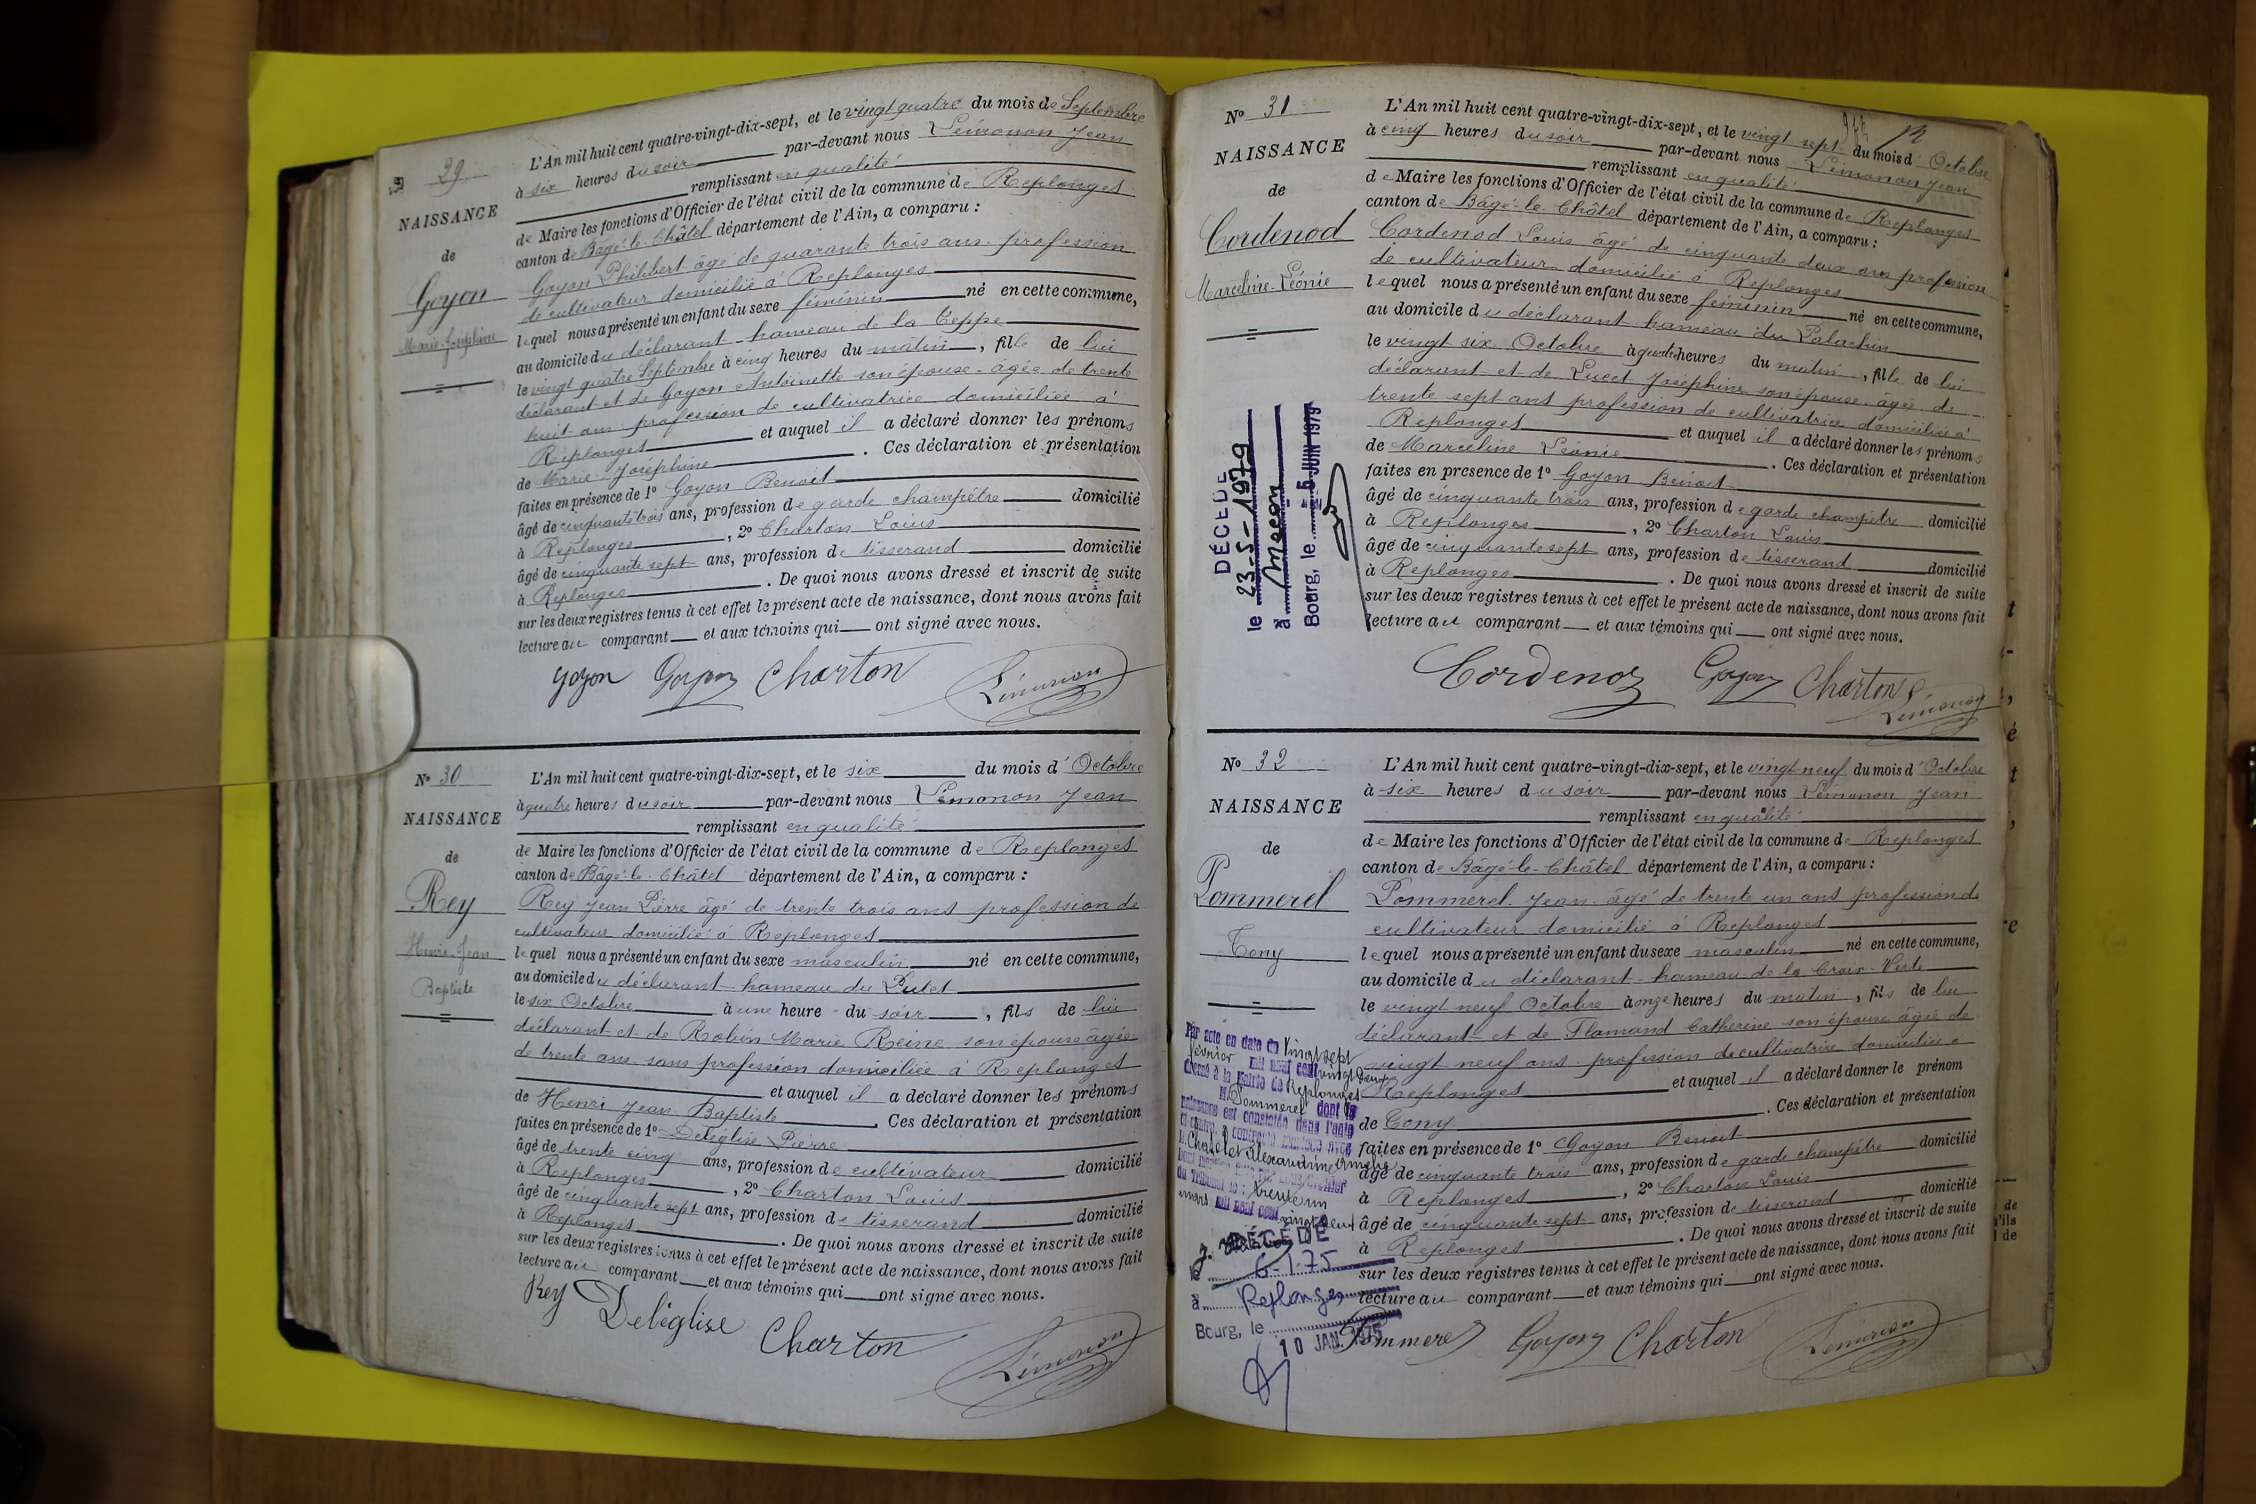 N° 29
NAISSANCE
de
Goyon
Marie-Joséphine
L'An mil huit cent quatre-vingt-dix-sept, et le vingt quatre du mois de Septembre
à six heures du soir par-devant nous Lémonon Jean
remplissant en qualité
de Maire les fonctions d'Officier de l'état civil de la commune de Replonges
canton de Bâgé-le-Châtel département de l'Ain, a comparu :
Goyon Philibert âgé de quarante trois ans profession
de cultivateur domicilié à Replonges
lequel nous a présenté un enfant du sexe féminin né en cette commune,
au domicile du déclarant hameau de la Teppe
le vingt quatre Septembre à cinq heures du matin, fille de lui
déclarant et de Goyon Antoinette son épouse âgée de trente
huit ans profession de cultivatrice domiciliée à
Replonges et auquel il a déclaré donner les prénoms
de Marie-Joséphine. Ces déclaration et présentation
faites en présence de 1° Goyon Benoit
âgé de cinquante trois ans, profession de garde champêtre domicilié
à Replonges, 2° Charton Louis
âgé de cinquante sept ans, profession de tisserand domicilié
à Replonges. De quoi nous avons dressé et inscrit de suite
sur les deux registres tenus à cet effet le présent acte de naissance, dont nous avons fait
lecture au comparant et aux témoins qui ont signé avec nous.
Goyon Goyon Charton Lémonon
N° 30
NAISSANCE
de
Rey
Henri-Jean
Baptiste
L'An mil huit cent quatre-vingt-dix-sept, et le six du mois d'Octobre
à quatre heures du soir par-devant nous Lémonon Jean
remplissant en qualité
de Maire les fonctions d'Officier de l'état civil de la commune de Replonges
canton de Bâgé-le-Châtel département de l'Ain, a comparu :
Rey Jean Pierre âgé de trente trois ans profession de
cultivateur domicilié à Replonges
lequel nous a présenté un enfant du sexe masculin né en cette commune,
au domicile du déclarant hameau du Putet
le six Octobre à une heure du soir, fils de lui
déclarant et de Robin Marie Reine son épouse âgée
de trente ans sans profession domiciliée à Replonges
et auquel il a déclaré donner les prénoms
de Henri Jean Baptiste. Ces déclaration et présentation
faites en présence de 1° Deléglise Pierre
âgé de trente cinq ans, profession de cultivateur domicilié
à Replonges, 2° Charton Louis
âgé de cinquante sept ans, profession de tisserand domicilié
à Replonges. De quoi nous avons dressé et inscrit de suite
sur les deux registres tenus à cet effet le présent acte de naissance, dont nous avons fait
lecture au comparant et aux témoins qui ont signé avec nous.
Rey Deléglise Charton Lémonon
N° 31
NAISSANCE
de
Cordenod
Marceline-Léonie
DÉCÉDÉ
le 23-5-1979
à Macon
Bourg, le - 5 JUIN 1979
L'An mil huit cent quatre-vingt-dix-sept, et le vingt sept du mois d'Octobre
à cinq heures du soir par-devant nous Lémonon Jean
remplissant en qualité
de Maire les fonctions d'Officier de l'état civil de la commune de Replonges
canton de Bâgé-le-Châtel département de l'Ain, a comparu :
Cordenod Louis âgé de cinquante deux ans profession
de cultivateur domicilié à Replonges
lequel nous a présenté un enfant du sexe féminin né en cette commune,
au domicile du déclarant hameau du Palachin
le vingt six Octobre à quatre heures du matin, fille de lui
déclarant et de Lucet Joséphine son épouse âgée de
trente sept ans profession de cultivatrice domiciliée à
Replonges et auquel il a déclaré donner les prénoms
de Marceline Léonie. Ces déclaration et présentation
faites en présence de 1° Goyon Benoit
âgé de cinquante trois ans, profession de garde champêtre domicilié
à Replonges, 2° Charton Louis
âgé de cinquante sept ans, profession de tisserand domicilié
à Replonges. De quoi nous avons dressé et inscrit de suite
sur les deux registres tenus à cet effet le présent acte de naissance, dont nous avons fait
lecture au comparant et aux témoins qui ont signé avec nous.
Cordenod Goyon Charton Lémonon
N° 32
NAISSANCE
de
Pommerel
Tony
Par acte en date du vingt sept
février mil neuf cent vingt deux
dressé à la Mairie de Replonges
M. Pommerel dont la
naissance est constatée dans l'acte
ci-contre, a contracté mariage avec
M. Chatelet Alexandrine Amélie
du Tribunal le : trente un
mars mil neuf cent vingt deux
DÉCÉDÉ
le 6-1-75
à Replonges
Bourg, le 10 JAN. 1975
L'An mil huit cent quatre-vingt-dix-sept, et le vingt neuf du mois d'Octobre
à six heures du soir par-devant nous Lémonon Jean
remplissant en qualité
de Maire les fonctions d'Officier de l'état civil de la commune de Replonges
canton de Bâgé-le-Châtel département de l'Ain, a comparu :
Pommerel Jean âgé de trente un ans profession de
cultivateur domicilié à Replonges
lequel nous a présenté un enfant du sexe masculin né en cette commune,
au domicile du déclarant hameau de la Croix-Verte
le vingt neuf Octobre à onze heures du matin, fils de lui
déclarant et de Flamand Catherine son épouse âgée de
vingt neuf ans profession de cultivatrice domiciliée à
Replonges et auquel il a déclaré donner le prénom
de Tony. Ces déclaration et présentation
faites en présence de 1° Goyon Benoit
âgé de cinquante trois ans, profession de garde champêtre domicilié
à Replonges, 2° Charton Louis
âgé de cinquante sept ans, profession de tisserand domicilié
à Replonges. De quoi nous avons dressé et inscrit de suite
sur les deux registres tenus à cet effet le présent acte de naissance, dont nous avons fait
lecture au comparant et aux témoins qui ont signé avec nous.
Pommerel Goyon Charton Lémonon